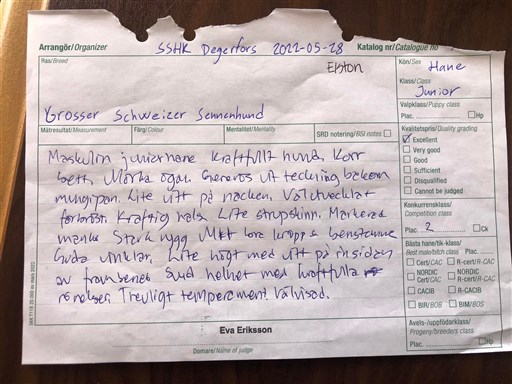 Arrangör/Organizer SSHK Degerfors 2022-05-28 Katalog nr/Catalogue no
Ras/Breed
Elston
Kön/Sex Hane
Klass/Class
Junior
Valpklass/Puppy class
Plac. Hp
Grosser Schweizer Sennenhund
Mätresultat/Measurement Färg/Colour Mentalitet/Mentality SRD notering/BSI notes
Kvalitetspris/Quality grading
Excellent
Very good
Good
Sufficient
Disqualified
Cannot be judged
Maskulin juniorhane Kraftfullt hund, Korr
bett, Mörka ögon. Generös vit teckning bakom
mungipan. Lite vitt på nacken. Välutvecklat
förbröst. Kraftig hals Lite strupskinn. Markerad
manke Stark rygg Mkt bra kropp & benstomme
Goda vinklar. Lite högt med vitt på insidan
av frambenet God helhet med kraftfulla
rörelser Trevligt temperament Välvisad.
Konkurrensklass/
Competition class
Plac. 2 Ck
Bästa hane/tik-klass/
Best male/bitch class Plac.
Cert/CAC R-cert/R-CAC
NORDIC Cert/CAC NORDIC R-cert/R-CAC
CACIB R-CACIB
BIR/BOB BIM/BOS
Avels-/uppfödarklass/
Progeny/breeders class
Plac. Hp
Eva Eriksson
Domare/Name of judge